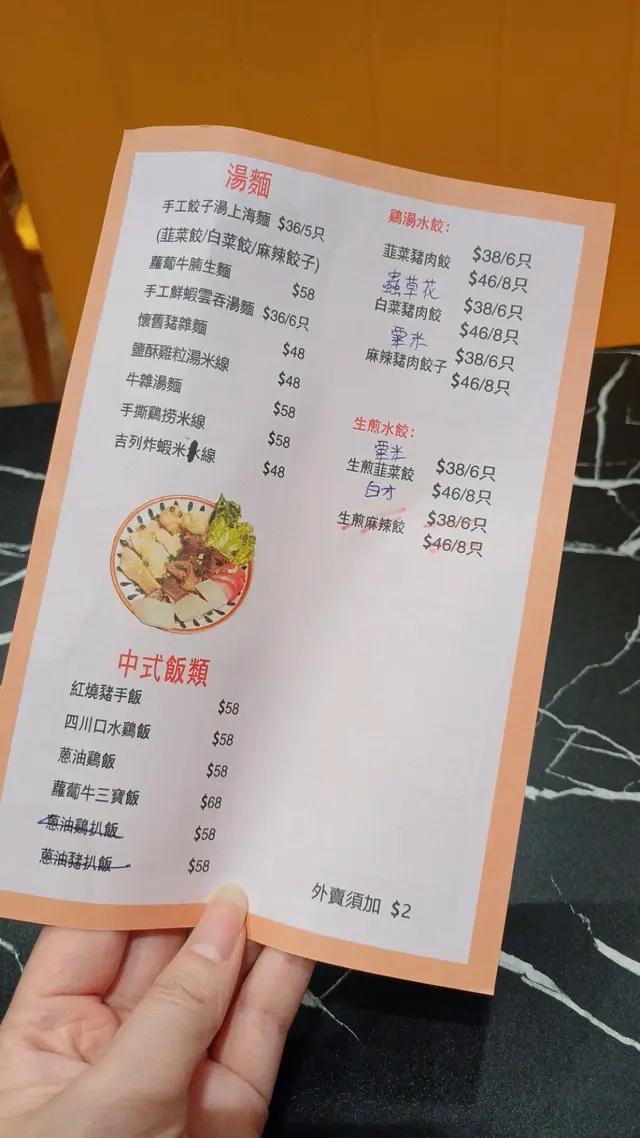 湯麵
手工餃子湯上海麵 $36/5只
(韮菜餃/白菜餃/麻辣餃子)
蘿蔔牛腩生麵 $58
手工鮮蝦雲吞湯麵 $36/6只
懷舊豬雜麵 $48
鹽酥雞粒湯米線 $48
牛雜湯麵 $58
手撕鷄撈米線 $58
吉列炸蝦米線 $48
中式飯類
紅燒豬手飯 $58
四川口水鷄飯 $58
蔥油鷄飯 $58
蘿蔔牛三寶飯 $68
蔥油鷄扒飯 $58
蔥油豬扒飯 $58
鷄湯水餃:
韮菜豬肉餃 $38/6只
蟲草花 $46/8只
白菜豬肉餃 $38/6只
粟米 $46/8只
麻辣豬肉餃子 $38/6只
$46/8只
生煎水餃:
粟米
生煎韮菜餃 $38/6只
白才 $46/8只
生煎麻辣餃 $38/6只
$46/8只
外賣須加 $2